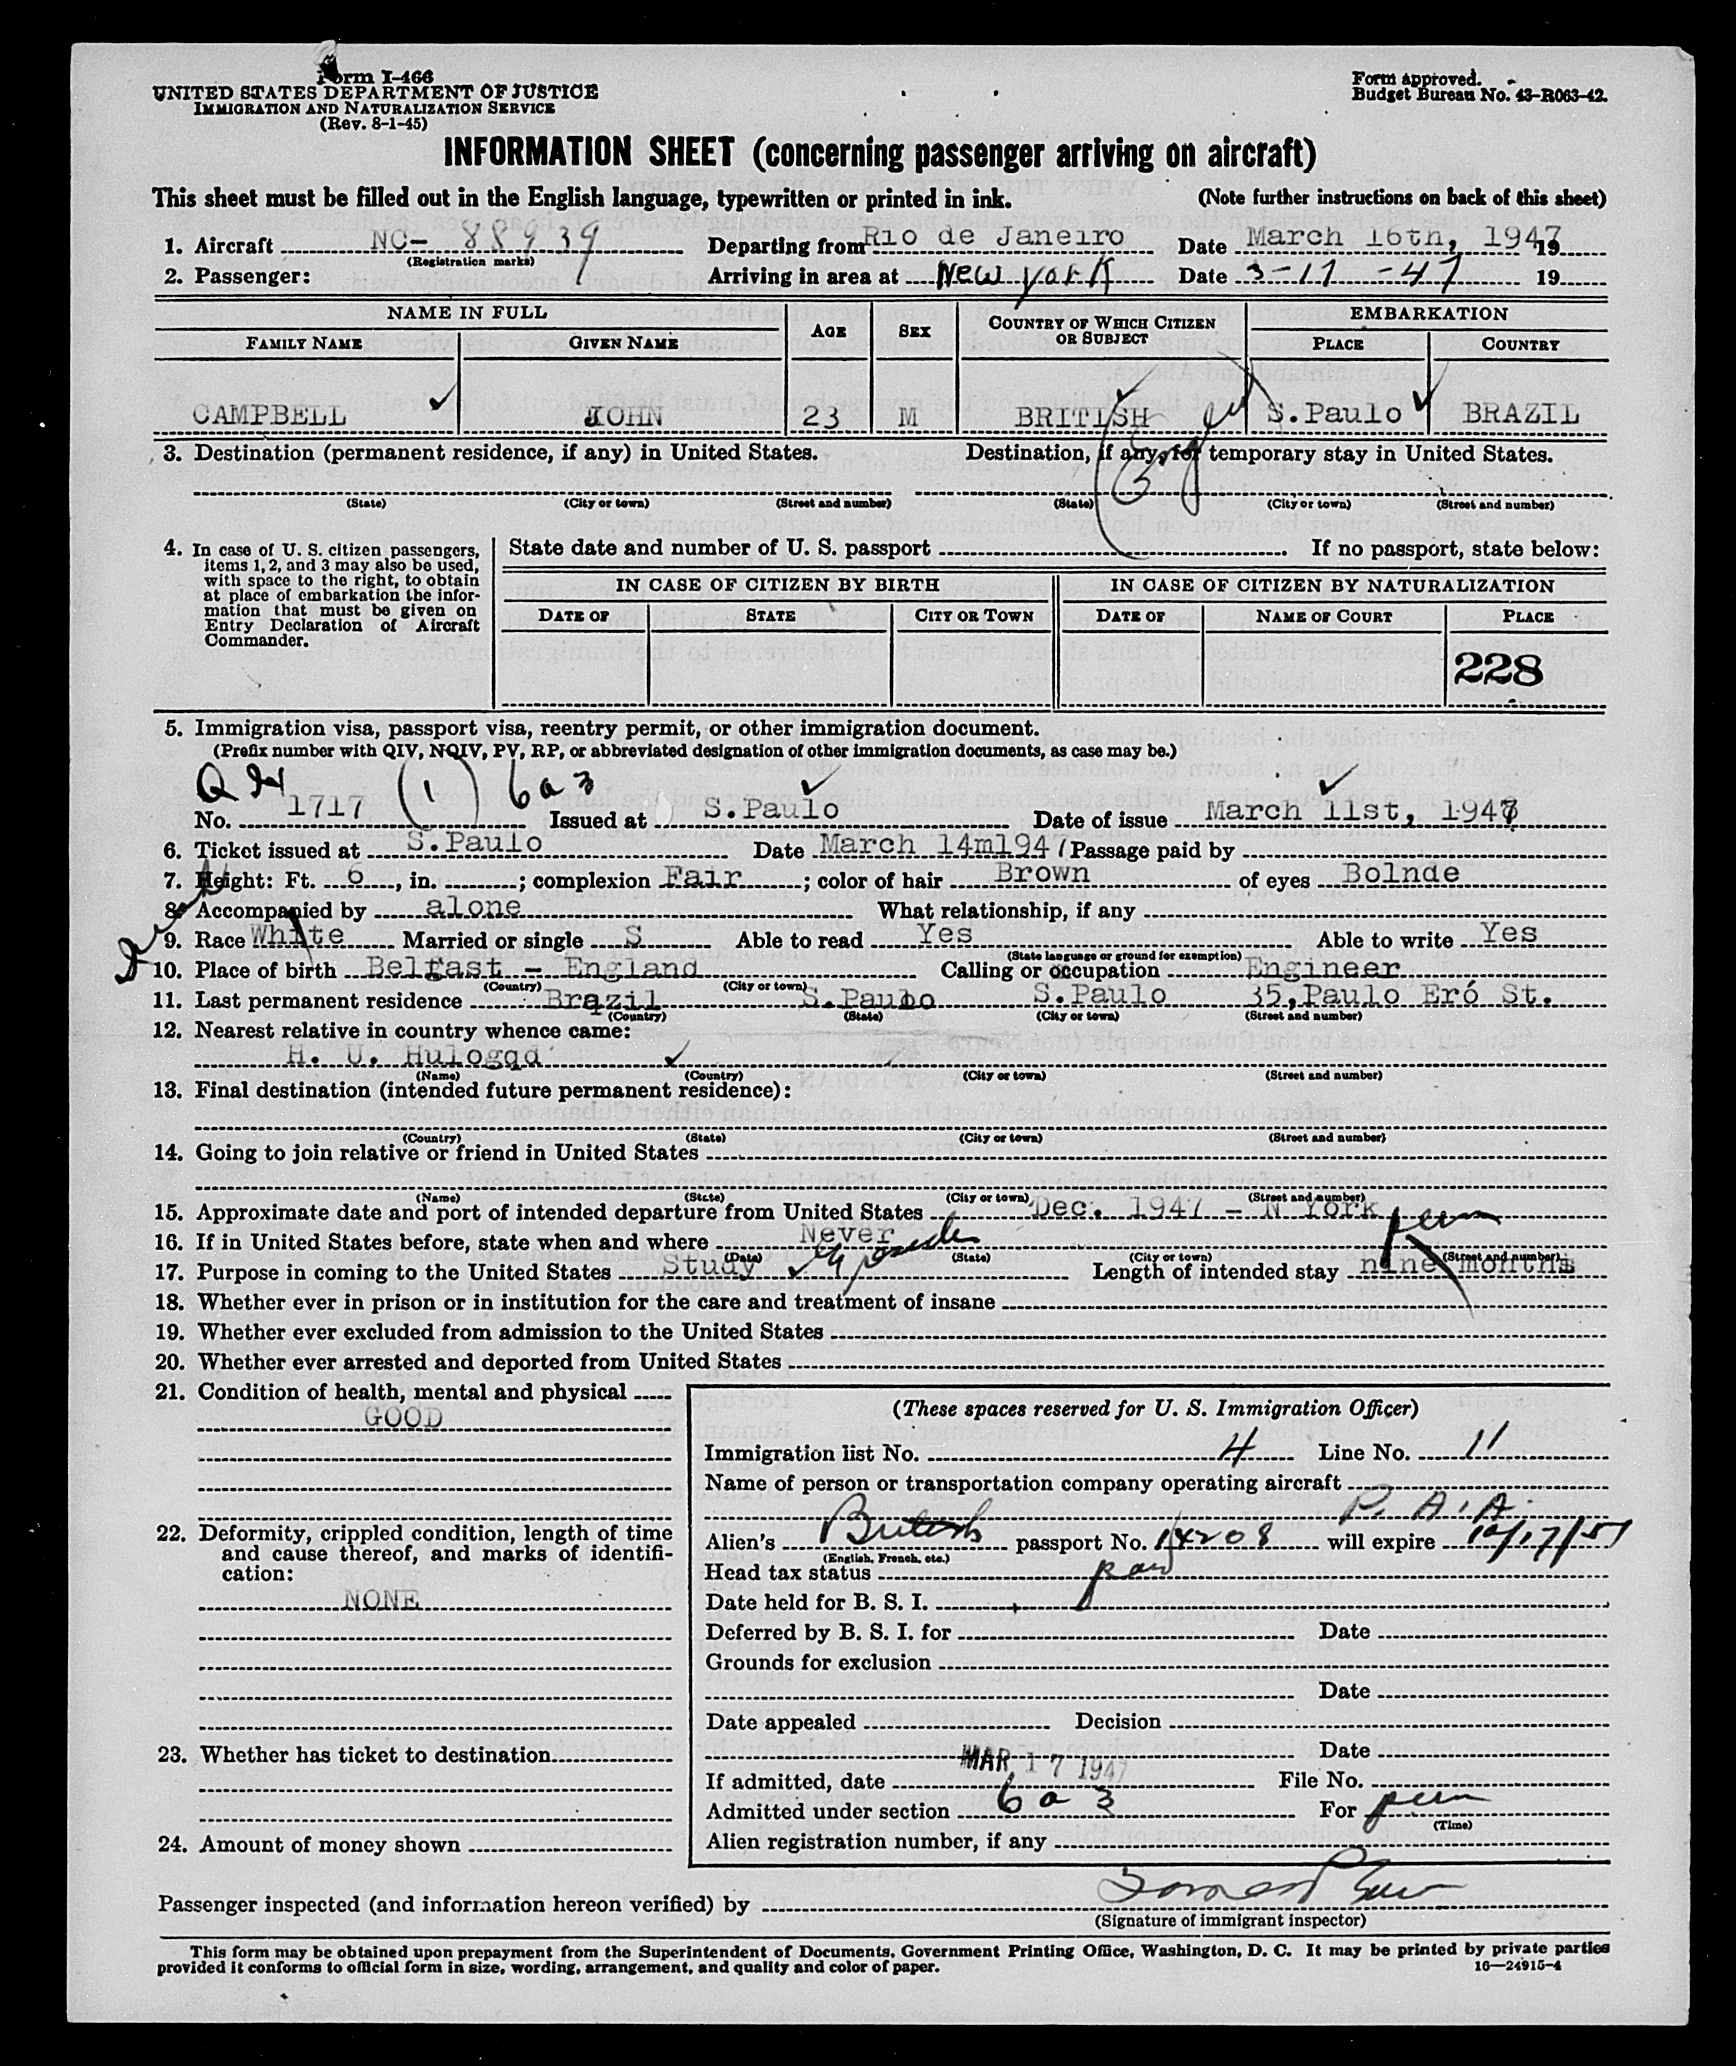 Form I-466
UNITED STATES DEPARTMENT OF JUSTICE
IMMIGRATION AND NATURALIZATION SERVICE
(Rev. 8-1-45)
Form approved.
Budget Bureau No. 43-R063-42.
INFORMATION SHEET (concerning passenger arriving on aircraft)
This sheet must be filled out in the English language, typewritten or printed in ink. (Note further instructions on back of this sheet)
1. Aircraft NC- 88939 Departing from Rio de Janeiro Date March 16th, 1947 19
(Registration marks)
2. Passenger: Arriving in area at New York Date 3-17-47 19
NAME IN FULL AGE SEX COUNTRY OF WHICH CITIZEN OR SUBJECT EMBARKATION
FAMILY NAME GIVEN NAME PLACE COUNTRY
CAMPBELL JOHN 23 M BRITISH S.Paulo BRAZIL
3. Destination (permanent residence, if any) in United States. Destination, if any, for temporary stay in United States.
(State) (City or town) (Street and number) (State) (City or town) (Street and number)
4. In case of U. S. citizen passengers, items 1, 2, and 3 may also be used, with space to the right, to obtain at place of embarkation the information that must be given on Entry Declaration of Aircraft Commander.
State date and number of U. S. passport If no passport, state below:
IN CASE OF CITIZEN BY BIRTH IN CASE OF CITIZEN BY NATURALIZATION
DATE OF STATE CITY OR TOWN DATE OF NAME OF COURT PLACE
228
5. Immigration visa, passport visa, reentry permit, or other immigration document.
(Prefix number with QIV, NQIV, PV, RP, or abbreviated designation of other immigration documents, as case may be.)
(1) 6a3
No. 1717 Issued at S.Paulo Date of issue March 11st, 1947
6. Ticket issued at S.Paulo Date March 14m1947 Passage paid by
7. Height: Ft. 6, in. ; complexion Fair; color of hair Brown of eyes Bolnde
8. Accompanied by alone What relationship, if any
9. Race White Married or single S Able to read Yes Able to write Yes
(State language or ground for exemption)
10. Place of birth Belfast - England Calling or occupation Engineer
(Country) (City or town)
11. Last permanent residence Brazil S.Paulo S.Paulo 35,Paulo Eró St.
(Country) (State) (City or town) (Street and number)
12. Nearest relative in country whence came:
H. U. Hulogqd
(Name) (Country) (City or town) (Street and number)
13. Final destination (intended future permanent residence):
(Country) (State) (City or town) (Street and number)
14. Going to join relative or friend in United States
(Name) (State) (City or town) (Street and number)
15. Approximate date and port of intended departure from United States Dec. 1947 - N York
16. If in United States before, state when and where Never
(Date) (State) (City or town) (Street and number)
17. Purpose in coming to the United States Study Length of intended stay nine months
18. Whether ever in prison or in institution for the care and treatment of insane
19. Whether ever excluded from admission to the United States
20. Whether ever arrested and deported from United States
21. Condition of health, mental and physical
GOOD
22. Deformity, crippled condition, length of time and cause thereof, and marks of identification:
NONE
23. Whether has ticket to destination
24. Amount of money shown
(These spaces reserved for U. S. Immigration Officer)
Immigration list No. 4 Line No. 11
Name of person or transportation company operating aircraft
P. A. A.
Alien's British passport No. 14208 will expire 10/17/51
(English, French, etc.)
Head tax status
Date held for B. S. I.
Deferred by B. S. I. for Date
Grounds for exclusion
Date
Date appealed Decision
Date
If admitted, date MAR 17 1947 File No.
Admitted under section 6a3 For perm
(Time)
Alien registration number, if any
Passenger inspected (and information hereon verified) by
(Signature of immigrant inspector)
This form may be obtained upon prepayment from the Superintendent of Documents, Government Printing Office, Washington, D. C. It may be printed by private parties
provided it conforms to official form in size, wording, arrangement, and quality and color of paper.
16—24915-4